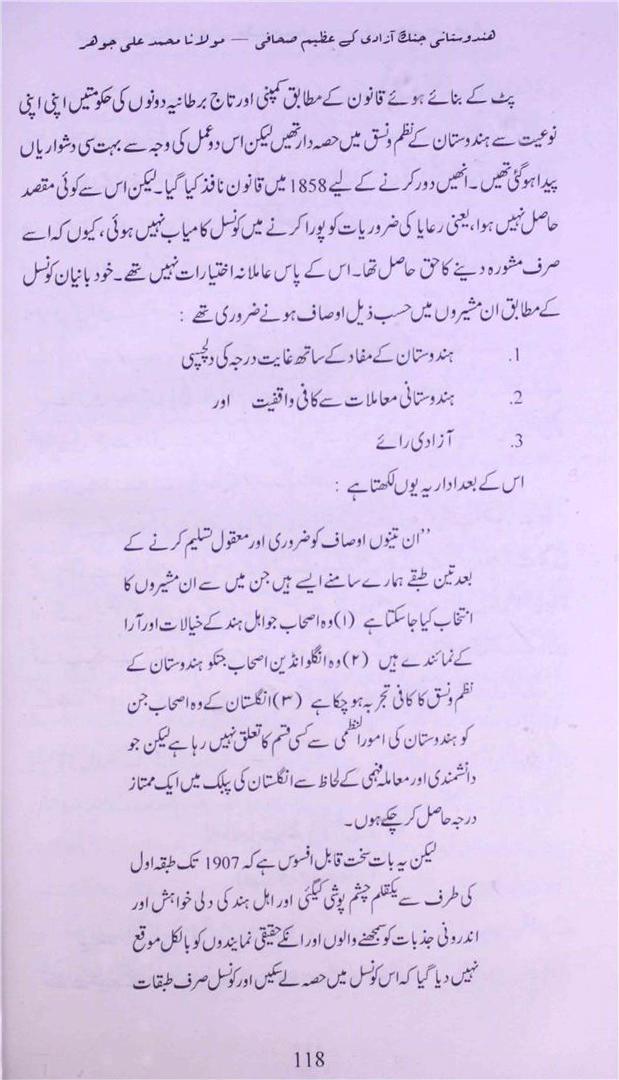 هندوستانی جنگ آزادی کے عظیم صحافی — مولانا محمد علی جوهر
پٹ کے بنائے ہوئے قانون کے مطابق کمپنی اور تاج برطانیہ دونوں کی حکومتیں اپنی اپنی
نوعیت سے ہندوستان کے نظم ونسق میں حصہ دار تھیں لیکن اس دو عمل کی وجہ سے بہت سی دشواریاں
پیدا ہوگئی تھیں۔ انھیں دور کرنے کے لیے 1858 میں قانون نافذ کیا گیا۔ لیکن اس سے کوئی مقصد
حاصل نہیں ہوا، یعنی رعایا کی ضروریات کو پورا کرنے میں کونسل کامیاب نہیں ہوئی، کیوں کہ اسے
صرف مشورہ دینے کا حق حاصل تھا۔ اس کے پاس عاملانہ اختیارات نہیں تھے۔ خود بانیان کونسل
کے مطابق ان مشیروں میں حسب ذیل اوصاف ہونے ضروری تھے :
1. ہندوستان کے مفاد کے ساتھ غایت درجہ کی دلچسپی
2. ہندوستانی معاملات سے کافی واقفیت اور
3. آزادی رائے
اس کے بعد اداریہ یوں لکھتا ہے :
”ان تینوں اوصاف کو ضروری اور معقول تسلیم کرنے کے
بعد تین طبقے ہمارے سامنے ایسے ہیں جن میں سے ان مشیروں کا
انتخاب کیا جاسکتا ہے (۱) وہ اصحاب جو اہل ہند کے خیالات اور آرا
کے نمائندے ہیں (۲) وہ انگلو انڈین اصحاب جنکو ہندوستان کے
نظم ونسق کا کافی تجربہ ہوچکا ہے (۳) انگلستان کے وہ اصحاب جن
کو ہندوستان کی امورالنظمی سے کسی قسم کا تعلق نہیں رہا ہے لیکن جو
دانشمندی اور معاملہ فہمی کے لحاظ سے انگلستان کی پبلک میں ایک ممتاز
درجہ حاصل کر چکے ہوں۔
لیکن یہ بات سخت قابل افسوس ہے کہ 1907 تک طبقہ اول
کی طرف سے یکقلم چشم پوشی کیگئی اور اہل ہند کی دلی خواہش اور
اندرونی جذبات کو سمجھنے والوں اور انکے حقیقی نمایندوں کو بالکل موقع
نہیں دیا گیا کہ اس کونسل میں حصہ لے سکیں اور کونسل صرف طبقات
118